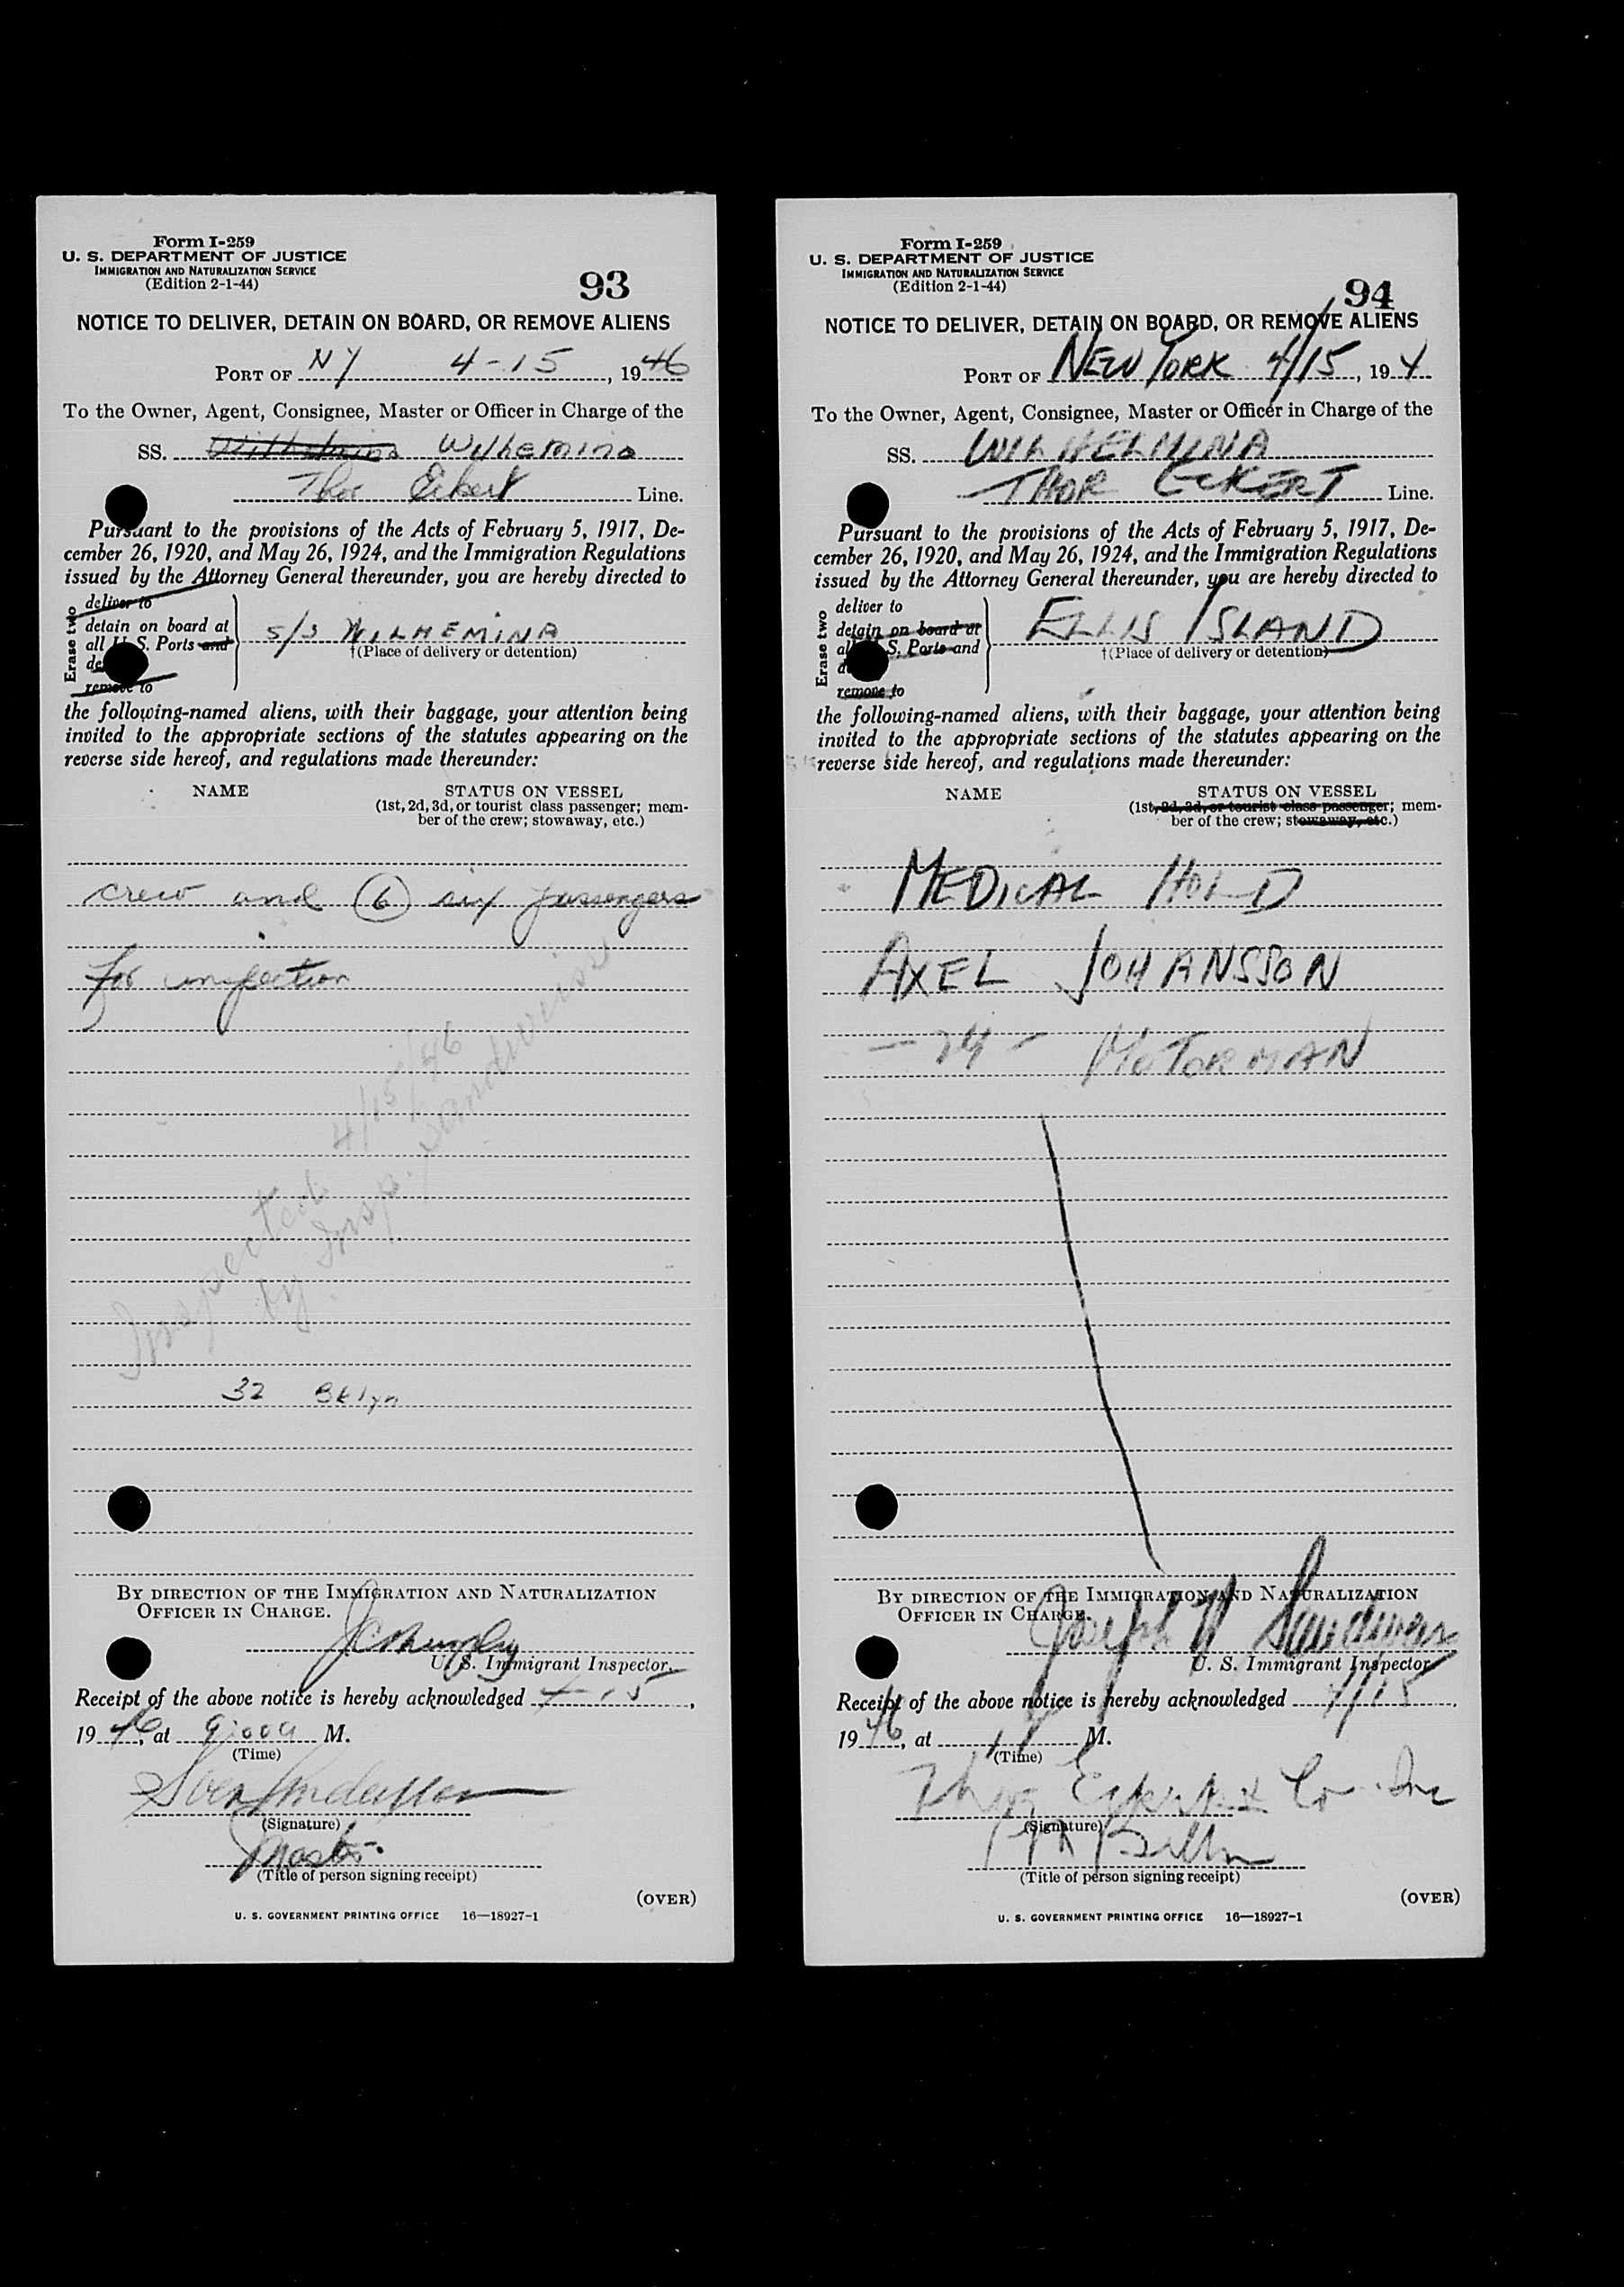 Form I-259
U. S. DEPARTMENT OF JUSTICE
IMMIGRATION AND NATURALIZATION SERVICE
(Edition 2-1-44)
93
NOTICE TO DELIVER, DETAIN ON BOARD, OR REMOVE ALIENS
PORT OF NY 4-15, 1946
To the Owner, Agent, Consignee, Master or Officer in Charge of the
SS. Wilhemina
Thor Eckert Line.
Pursuant to the provisions of the Acts of February 5, 1917, De-
cember 26, 1920, and May 26, 1924, and the Immigration Regulations
issued by the Attorney General thereunder, you are hereby directed to
Erase two
deliver to
detain on board at
all U. S. Ports and
S/S WILHEMINA
†(Place of delivery or detention)
remove to
the following-named aliens, with their baggage, your attention being
invited to the appropriate sections of the statutes appearing on the
reverse side hereof, and regulations made thereunder:
NAME
STATUS ON VESSEL
(1st, 2d, 3d, or tourist class passenger; mem-
ber of the crew; stowaway, etc.)
crew and 6 six passengers
for inspection
Inspected 4/15/46
by Insp.
32 Bklyn
BY DIRECTION OF THE IMMIGRATION AND NATURALIZATION
OFFICER IN CHARGE.
U. S. Immigrant Inspector.
Receipt of the above notice is hereby acknowledged 4-15,
1946, at 9:00a M.
(Time)
(Signature)
Master
(Title of person signing receipt)
(OVER)
U. S. GOVERNMENT PRINTING OFFICE 16—18927-1
Form I-259
U. S. DEPARTMENT OF JUSTICE
IMMIGRATION AND NATURALIZATION SERVICE
(Edition 2-1-44)
94
NOTICE TO DELIVER, DETAIN ON BOARD, OR REMOVE ALIENS
PORT OF NEW YORK 4/15, 194
To the Owner, Agent, Consignee, Master or Officer in Charge of the
SS. WILHELMINA
THOR ECKERT Line.
Pursuant to the provisions of the Acts of February 5, 1917, De-
cember 26, 1920, and May 26, 1924, and the Immigration Regulations
issued by the Attorney General thereunder, you are hereby directed to
Erase two
deliver to
detain on board at
all U. S. Ports and
ELLIS ISLAND
†(Place of delivery or detention)
remove to
the following-named aliens, with their baggage, your attention being
invited to the appropriate sections of the statutes appearing on the
reverse side hereof, and regulations made thereunder:
NAME
STATUS ON VESSEL
(1st, 2d, 3d, or tourist class passenger; mem-
ber of the crew; stowaway, etc.)
MEDICAL HOLD
AXEL JOHANSSON
- 24 - MOTORMAN
BY DIRECTION OF THE IMMIGRATION AND NATURALIZATION
OFFICER IN CHARGE.
Joseph
U. S. Immigrant Inspector.
Receipt of the above notice is hereby acknowledged 4/15,
1946, at M.
(Time)
Thor Eckert & Co. Inc
(Signature)
(Title of person signing receipt)
(OVER)
U. S. GOVERNMENT PRINTING OFFICE 16—18927-1